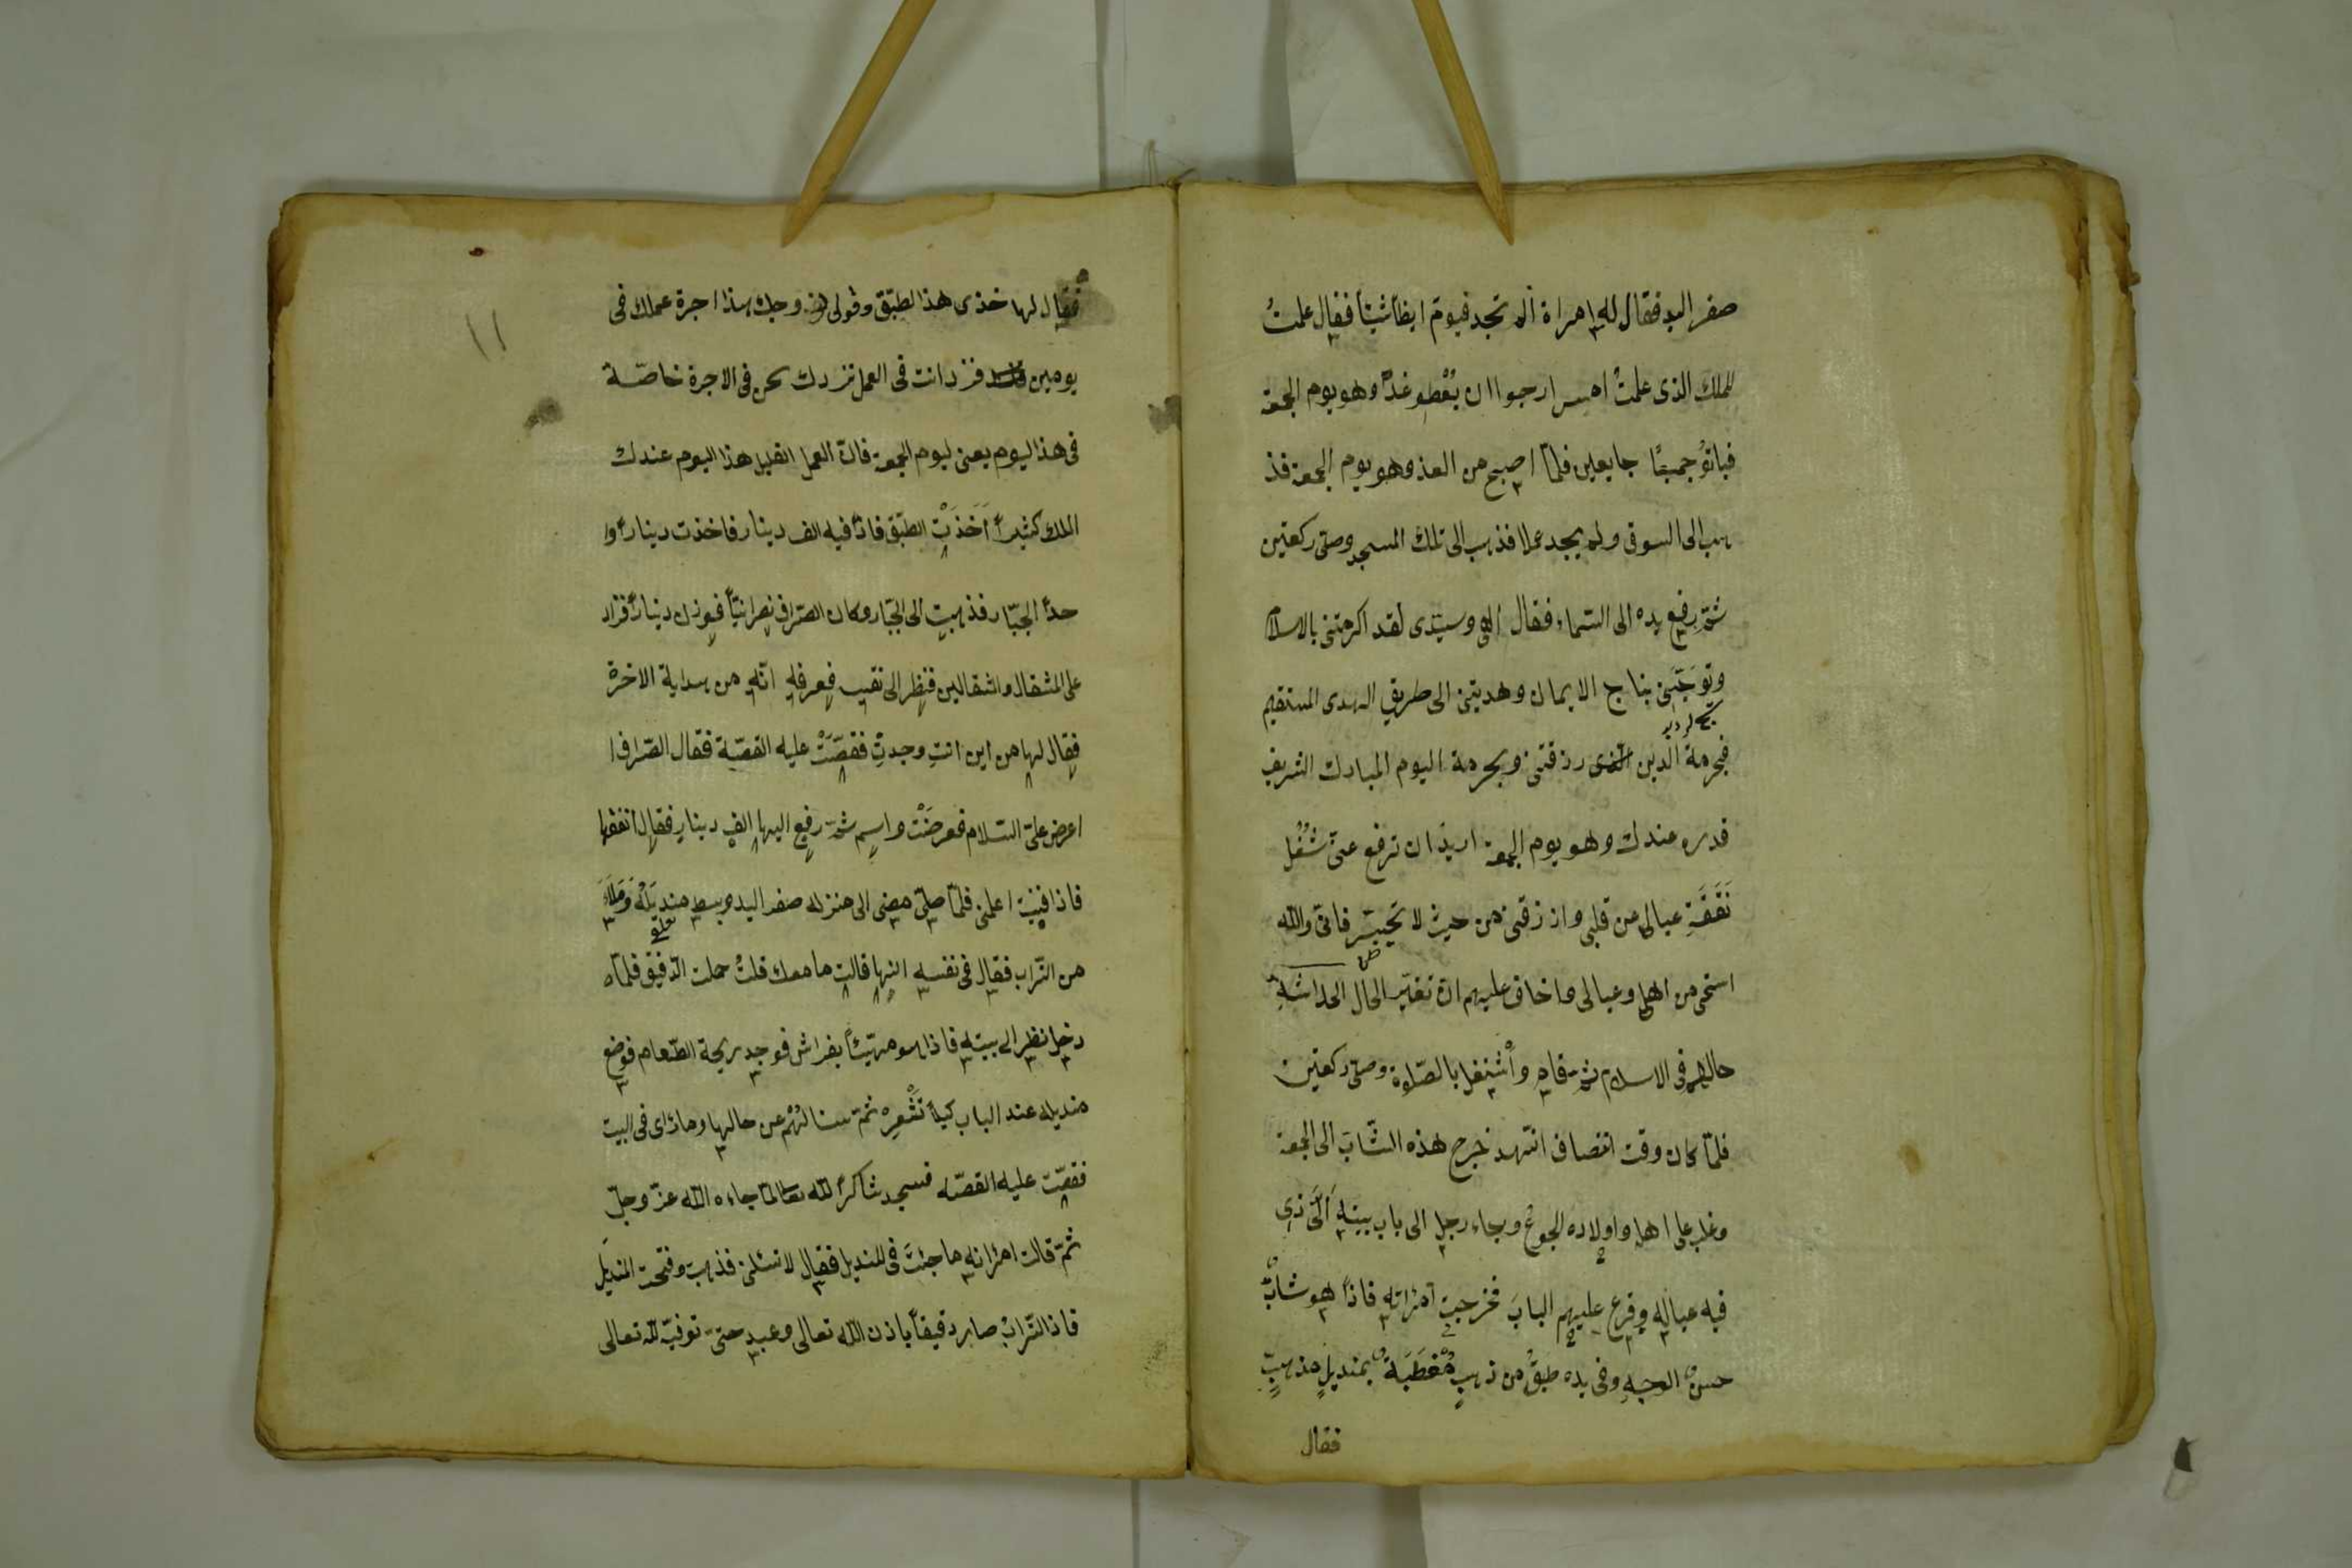 صفر اليد فقال له امراة الم تجد فيوم ايظاً شيئاً فقال علمتُ
للملك الذى علمتُ امس ارجوا ان يُعْطو غدًا وهو يوم الجمعة
فباتوُ جميعًا جايعين فلمّا اصبح من الغذ وهو يوم الجمعة فذ
هب الى السوقى ولم يجد عملا فذهب الى تلك المسجد وصلى ركعتين
ثمّ رفع يده الى السّماء فقال الهى وسيّدى لقد اكرمتنى بالاسلام
وتوَجّتَنى بتاج الايمان وهديتنى الى طريق الهدى المستقيم
فبحرمة الدين الذى رزقتنى وبحرمة اليوم المبارك الشريف
قدره عندك وهو يوم الجمعة اريدُ ان ترفع عنّى شُغُل
نَفَقَةِ عيالى من قلبى وارزقنى من حيث لا تحيتسر فانى والله
استحى من اهلى وعيالى واخاف عليهم ان تغيّر الحال الحداثة
حالهم فى الاسلام ثمّ قام وأشتغل بالصّلوة وصلى ركعتين
فلمّا كان وقت انتصاف النهد خرج هذه الشّابَ الى الجمعة
وغلب على اهله واولاده الجوع وجاء رجل الى باب بيته الّذى
فيه عياله وقرع عليهم البابَ فخرجت امراته فاذاً هو شابٌّ
حسن الوجهِ وفى يده طبقٌ من ذهبٍ مُغطَيَةٌ بمنديلٍ مذهبٍ
فقال
١١
فقال لها خذى هذا لطبّق وقولى لزوجك هذا اجرة عملك فى
يومين فزد انت فى العمل نزدك نحن فى الاجرة خاصّة
فى هذا ليوم يعنى ليوم الجمعة فان العمل القليل هذا اليوم عندك
الملك كثيراً اَخَذَتْ الطبّق فاذاً فيه الف دينار فاخذت ديناراً وا
حداً الجبّار فذهبت الى الجبّار وكان الصّراف نصرانيّاً فوزن ديناراً فزاد
على المثقال والثقالين فنظر الى نقيب فعرفه انّه من هداية الاخرة
فقال لها من اين انتِ وجدتِ فقصّتْ عليه القصّة فقال الصّراف ا
اعرض علىّ السّلام فعرضَتْ واسم ثمّ رفع اليها الف دينار فقال انفقها
فاذا فنيت اعلمنى فلمّا صلىّ مضى الى منزله صفر اليد وبسط منديَلَهُ وَمَلاَءَ
من التّراب فقال فى نفسه انها قالت ما معك قلتُ حملت الدّقيق فلمّا
دخل نظر الى بيته فاذا هو مهيّئاً بفراش فوجد ريحة الطّعام فوضع
منديله عند الباب كيلاَ تَشْعِرَهْ ثمّ سئا لَهُمْ عن حالها وما رأى فى البيت
فقصّت عليه القصّه فسجد شاكراً لله تعالى لمّا جاءه الله عزّ وجلّ
ثمّ قالت امراته ما جئتَ فى للمنديل فقال لا تسئلنى فذهبت وفتحت المنديَل
فاذا لتّرابُ صار دقيقاً باذن الله تعالى وعبد حتىّ توفيّه لله تعالى